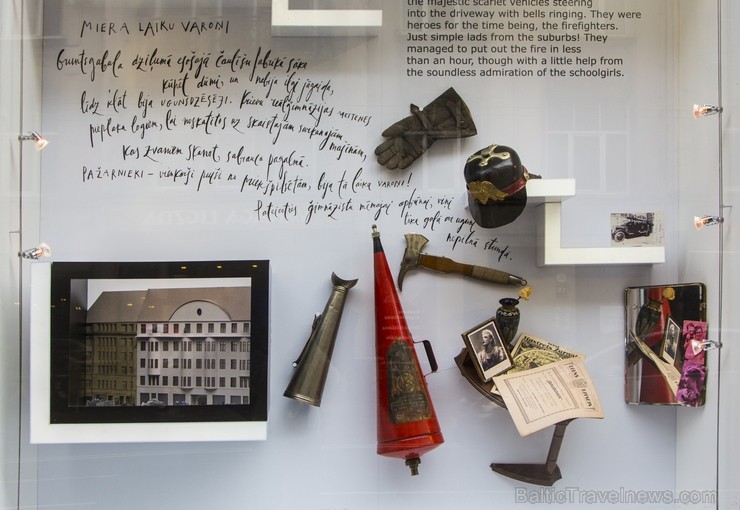 the majestic scarlet vehicles steering
into the driveway with bells ringing. They were
heroes for the time being, the firefighters.
Just simple lads from the suburbs! They
managed to put out the fire in less
than an hour, though with a little help from
the soundless admiration of the schoolgirls.
MIERA LAIKU VAROŅI
Gruntsgabala dziļumā esošajā čaulīšu fabrikā sāka
kūpēt dūmi, un nebija ilgi jāgaida,
līdz klāt bija UGUNSDZĒSĒJI. Krievu reālģimnāzijas meitenes
pieplaka logiem, lai noskatītos uz skaistajām sarkanajām
mašīnām,
kas zvaniem skanot, sabrauca pagalmā.
PAŽARNIEKI - vienkārši puiši no priekšpilsētām, bija tā laika varoņi!
Pateicoties ģimnāzistu mēmajai apbrīnai, viņi
tika galā ar uguni
nepilnā stundā.
BalticTravelnews.com